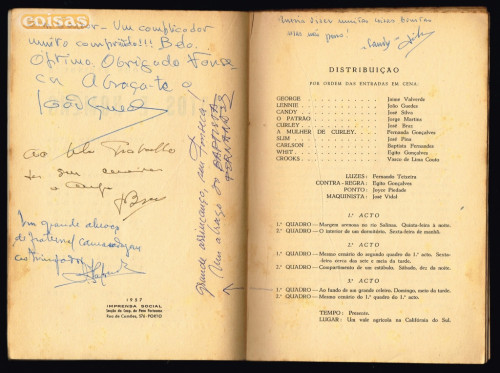 coisas
Um complicador
muito comprido!!! Belo.
Óptimo. Obrigado
Abraça-te o
João Guedes
Ao belo trabalho
amigo
Um grande abraço
de fraternal camaradagem
1957
IMPRENSA SOCIAL
PORTO
Um abraço do BAPTISTA
FERNANDES
muitas coisas bonitas
mas não posso!
"Candy"
DISTRIBUIÇÃO
POR ORDEM DAS ENTRADAS EM CENA
GEORGE . . . Jaime Valverde
LENNIE . . . João Guedes
CANDY . . . José Silva
O PATRÃO . . . Jorge Martins
CURLEY . . . José Braz
A MULHER DE CURLEY . . . Fernanda Gonçalves
SLIM . . . José Pina
CARLSON . . . Baptista Fernandes
WHIT . . . Egito Gonçalves
CROOKS . . . Vasco de Lima Couto
LUZES: Fernando Teixeira
CONTRA-REGRA: Egito Gonçalves
PONTO: Joyce Piedade
MAQUINISTA: José Vidal
1.º ACTO
1.º QUADRO — Margem arenosa no rio Salinas. Quinta-feira à noite.
2.º QUADRO — O interior de um dormitório. Sexta-feira de manhã.
2.º ACTO
1.º QUADRO — Mesmo cenário do segundo quadro do 1.º acto. Sexta-
feira cerca das sete e meia da tarde.
2.º QUADRO — Compartimento de um estábulo. Sábado, dez da noite.
3.º ACTO
1.º QUADRO — Ao fundo de um grande celeiro. Domingo, meio da tarde.
2.º QUADRO — Mesmo cenário do 1.º quadro do 1.º acto.
TEMPO: Presente.
LUGAR: Um vale agrícola na Califórnia do Sul.